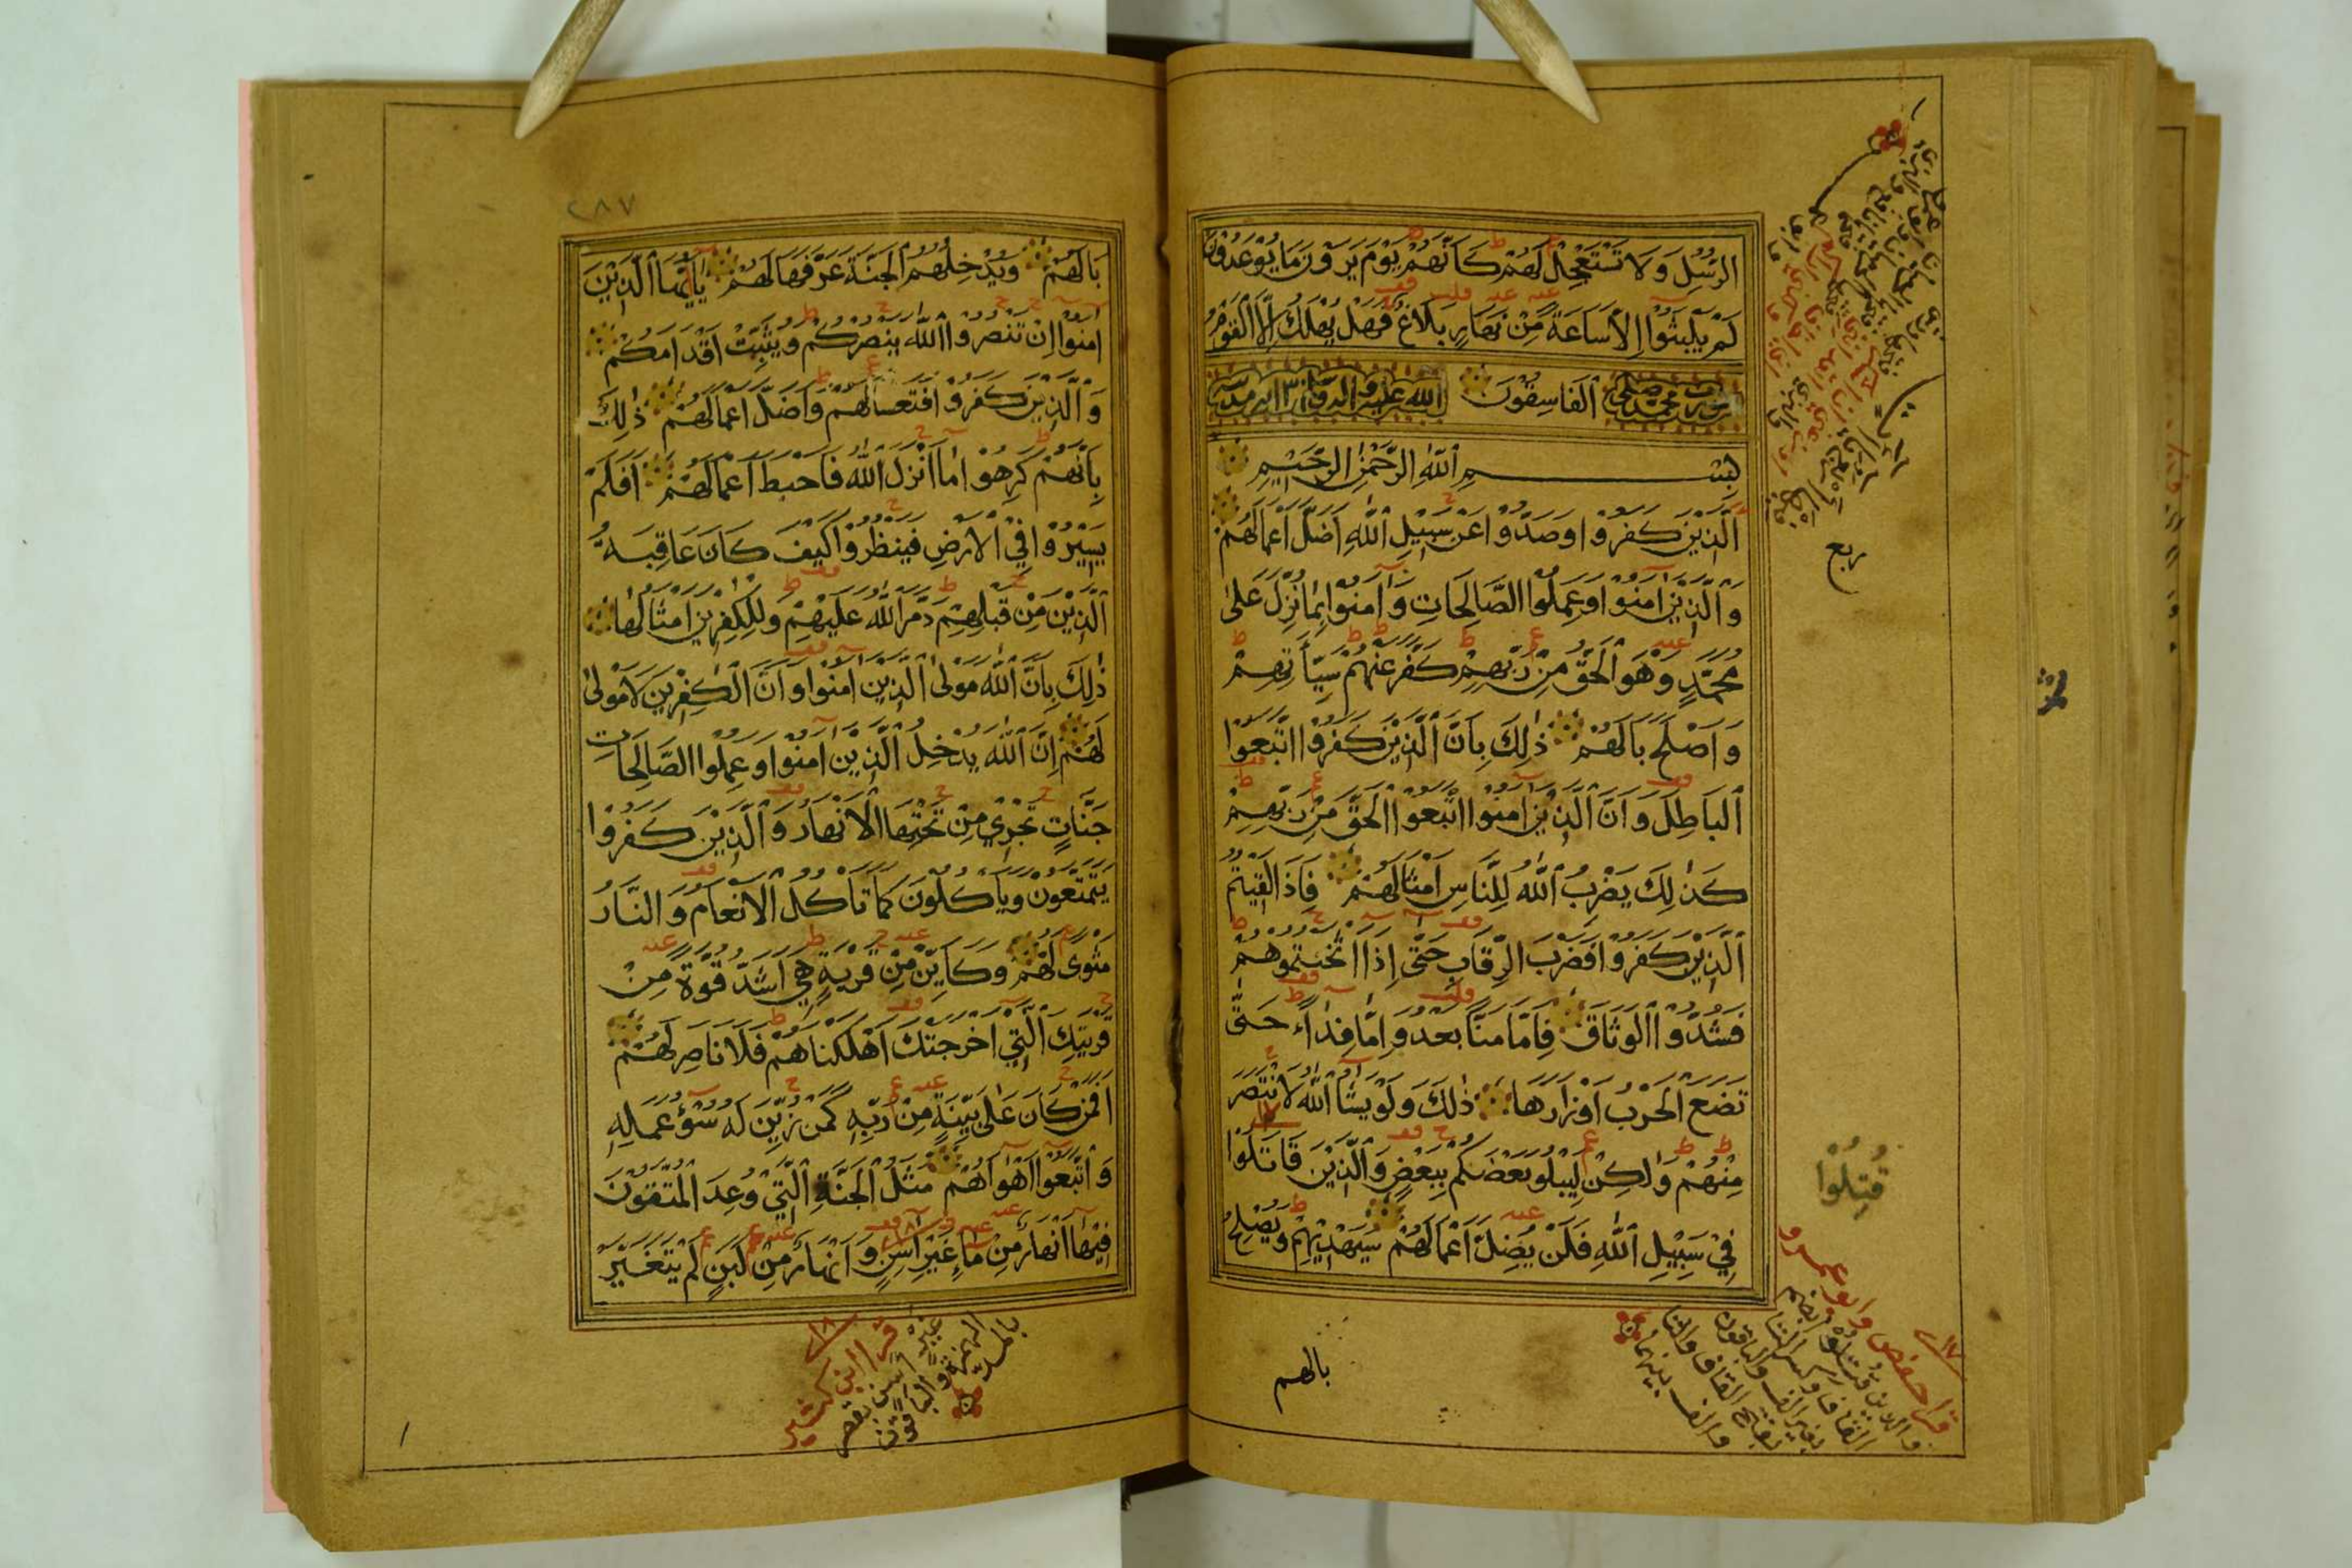 الرُّسُلِ وَلَا تَسْتَعْجِلْ لَهُمْ كَاَنَّهُمْ يَوْمَ يَرَوْنَ مَا يُوْعَدُوْنَ
لَمْ يَلْبَثُوْا اِلَّا سَاعَةً مِنْ نَهَارٍ بَلَاغٌ فَهَلْ يُهْلَكُ اِلَّا الْقَوْمُ
اَلْفَاسِقُوْنَ
سورة محمد صلى الله عليه و
بِسْمِ اللهِ الرَّحْمٰنِ الرَّحِيْمِ
اَلَّذِيْنَ كَفَرُوْا وَصَدُّوْا عَنْ سَبِيْلِ اللهِ اَضَلَّ اَعْمَالَهُمْ
وَالَّذِيْنَ اٰمَنُوْا وَعَمِلُوْا الصَّالِحَاتِ وَاٰمَنُوْا بِمَا نُزِّلَ عَلٰى
مُحَمَّدٍ وَهُوَ الْحَقُّ مِنْ رَبِّهِمْ كَفَّرَ عَنْهُمْ سَيِّاٰتِهِمْ
وَاَصْلَحَ بَالَهُمْ ذٰلِكَ بِاَنَّ الَّذِيْنَ كَفَرُوْا اتَّبَعُوْا
الْبَاطِلَ وَاَنَّ الَّذِيْنَ اٰمَنُوْا اتَّبَعُوْا الْحَقَّ مِنْ رَبِّهِمْ
كَذٰلِكَ يَضْرِبُ اللهُ لِلنَّاسِ اَمْثَالَهُمْ فَاِذَا لَقِيْتُمُ
الَّذِيْنَ كَفَرُوْا فَضَرْبَ الرِّقَابِ حَتّٰى اِذَا اَثْخَنْتُمُوْهُمْ
فَشُدُّوْا الْوَثَاقَ فَاِمَّا مَنًّا بَعْدُ وَاِمَّا فِدَاءً حَتّٰى
تَضَعَ الْحَرْبُ اَوْزَارَهَا ذٰلِكَ وَلَوْ يَشَاءُ اللهُ لَانْتَصَرَ
مِنْهُمْ وَلٰكِنْ لِيَبْلُوَ بَعْضَكُمْ بِبَعْضٍ وَالَّذِيْنَ قَاتَلُوْا
فِيْ سَبِيْلِ اللهِ فَلَنْ يُضِلَّ اَعْمَالَهُمْ سَيَهْدِيْهِمْ وَيُصْلِحُ
ربع
قُتِلُوْا
قرا حفص وابو عمرو
بالهم
٢٨٧
بَالَهُمْ وَيُدْخِلُهُمُ الْجَنَّةَ عَرَّفَهَا لَهُمْ يَا اَيُّهَا الَّذِيْنَ
اٰمَنُوْا اِنْ تَنْصُرُوْا اللهَ يَنْصُرْكُمْ وَيُثَبِّتْ اَقْدَامَكُمْ
وَالَّذِيْنَ كَفَرُوْا فَتَعْسًا لَهُمْ وَاَضَلَّ اَعْمَالَهُمْ ذٰلِكَ
بِاَنَّهُمْ كَرِهُوْا مَا اَنْزَلَ اللهُ فَاَحْبَطَ اَعْمَالَهُمْ اَفَلَمْ
يَسِيْرُوْا فِي الْاَرْضِ فَيَنْظُرُوْا كَيْفَ كَانَ عَاقِبَةُ
الَّذِيْنَ مِنْ قَبْلِهِمْ دَمَّرَ اللهُ عَلَيْهِمْ وَلِلْكٰفِرِيْنَ اَمْثَالُهَا
ذٰلِكَ بِاَنَّ اللهَ مَوْلَى الَّذِيْنَ اٰمَنُوْا وَاَنَّ الْكٰفِرِيْنَ لَا مَوْلٰى
لَهُمْ اِنَّ اللهَ يُدْخِلُ الَّذِيْنَ اٰمَنُوْا وَعَمِلُوْا الصَّالِحَاتِ
جَنَّاتٍ تَجْرِيْ مِنْ تَحْتِهَا الْاَنْهَارُ وَالَّذِيْنَ كَفَرُوْا
يَتَمَتَّعُوْنَ وَيَاْكُلُوْنَ كَمَا تَاْكُلُ الْاَنْعَامُ وَالنَّارُ
مَثْوًى لَهُمْ وَكَاَيِّنْ مِنْ قَرْيَةٍ هِيَ اَشَدُّ قُوَّةً مِنْ
قَرْيَتِكَ الَّتِيْ اَخْرَجَتْكَ اَهْلَكْنَاهُمْ فَلَا نَاصِرَ لَهُمْ
اَفَمَنْ كَانَ عَلٰى بَيِّنَةٍ مِنْ رَبِّهِ كَمَنْ زُيِّنَ لَهُ سُوْءُ عَمَلِهِ
وَاتَّبَعُوْا اَهْوَاءَهُمْ مَثَلُ الْجَنَّةِ الَّتِيْ وُعِدَ الْمُتَّقُوْنَ
فِيْهَا اَنْهَارٌ مِنْ مَاءٍ غَيْرِ اٰسِنٍ وَاَنْهَارٌ مِنْ لَبَنٍ لَمْ يَتَغَيَّرْ
قرا ابن كثير
غير اسن بقصر
الهمزة والباقون
بالمد